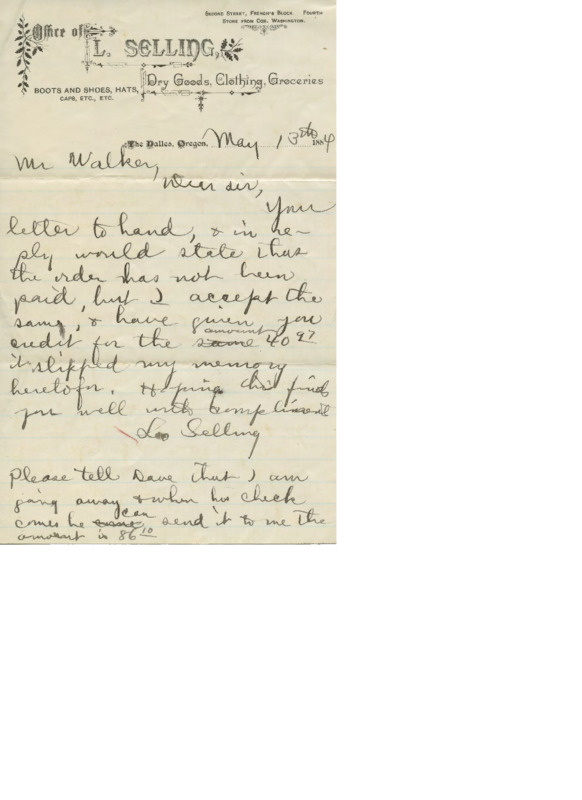 Second Street, French's Block. Fourth
Store from Cor. Washington.
Office of
L. SELLING,
Dry Goods, Clothing, Groceries
BOOTS AND SHOES, HATS,
CAPS, ETC., ETC.
The Dalles, Oregon, May 13th 1884
Mr Walker,
Dear sir,
Your
letter to hand, & in re-
ply would state that
the order has not been
paid, but I accept the
same, & have given you
amount
credit for the same 40 97
it slipped my memory
heretofor. Hoping this finds
you well with compliment
L Selling
Please tell Dave that I am
going away & when his check
can
comes he send it to me the
amount is 86 10